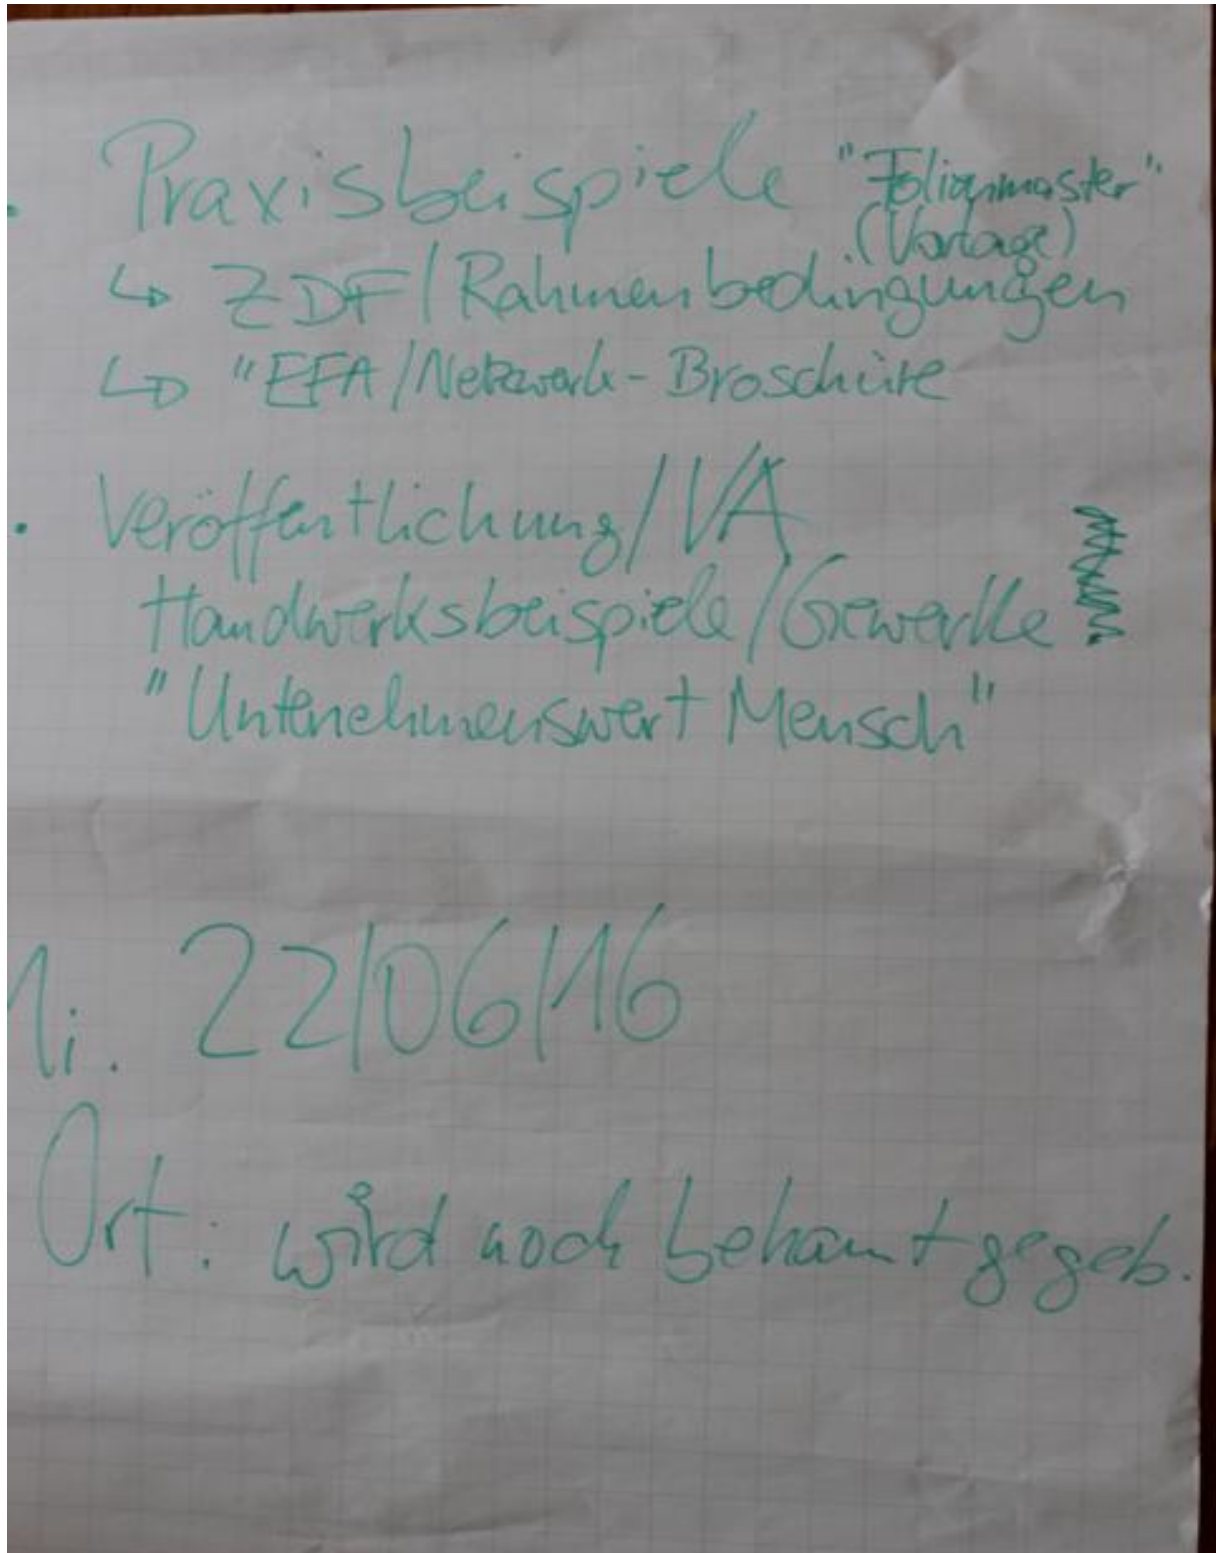 • Praxisbeispiele "Folienmaster"
(Vorlage)
↳ ZDF/Rahmenbedingungen
↳ "EFA/Netzwerk-Broschüre
• Veröffentlichung/VA
Handwerksbeispiele/Gewerke
"Unternehmenswert Mensch"
Mi. 22/06/16
Ort: wird noch bekannt gegeb.